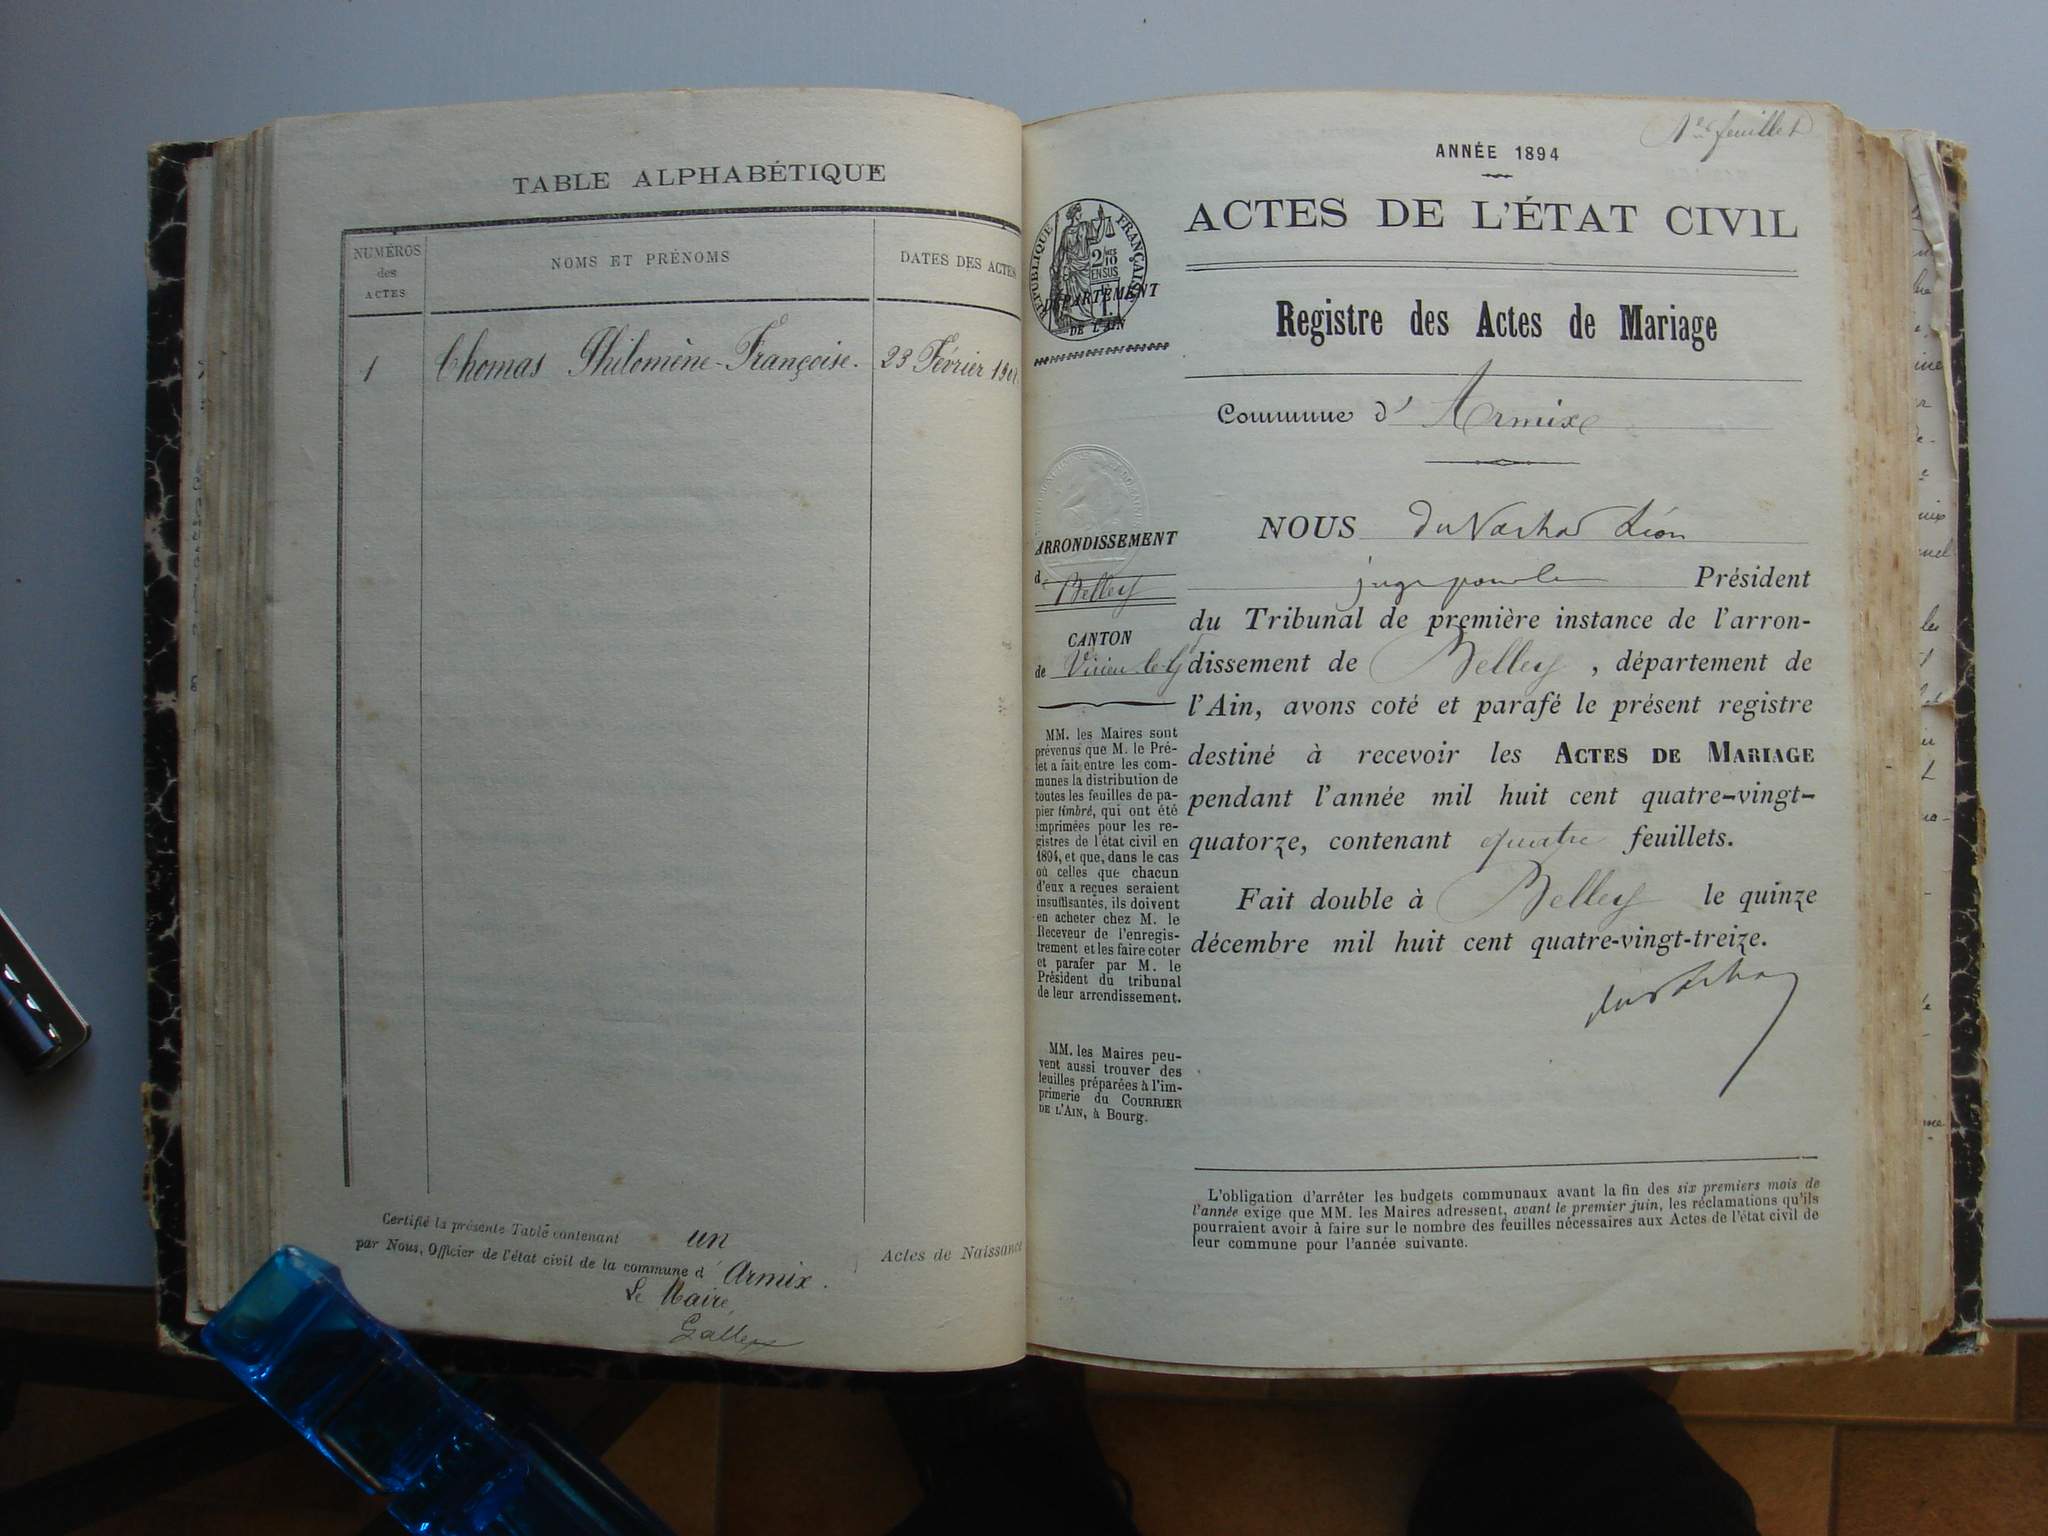 TABLE ALPHABÉTIQUE
NUMÉROS
des
ACTES
NOMS ET PRÉNOMS
DATES DES ACTES
1
Thomas Philomène-Françoise.
23 Février
Certifié la présente Table contenant un Actes de Naissance
par Nous, Officier de l'état civil de la commune d'Armix.
Le Maire,
1er feuillet
ANNÉE 1894
ACTES DE L'ÉTAT CIVIL
RÉPUBLIQUE FRANÇAISE
2/10 EN SUS
DÉPARTEMENT
DE L'AIN
Registre des Actes de Mariage
Commune d'Armix
ARRONDISSEMENT
de Belley
CANTON
de Virieu le Gd
MM. les Maires sont
prévenus que M. le Pré-
fet a fait entre les com-
munes la distribution de
toutes les feuilles de pa-
pier timbré, qui ont été
imprimées pour les re-
gistres de l'état civil en
1894, et que, dans le cas
où celles que chacun
d'eux a reçues seraient
insuffisantes, ils doivent
en acheter chez M. le
Receveur de l'enregis-
trement et les faire coter
et parafer par M. le
Président du tribunal
de leur arrondissement.
MM. les Maires peu-
vent aussi trouver des
feuilles préparées à l'im-
primerie du COURRIER
DE L'AIN, à Bourg.
NOUS Léon
juge pour le Président
du Tribunal de première instance de l'arron-
dissement de Belley, département de
l'Ain, avons coté et parafé le présent registre
destiné à recevoir les ACTES DE MARIAGE
pendant l'année mil huit cent quatre-vingt-
quatorze, contenant quatre feuillets.
Fait double à Belley le quinze
décembre mil huit cent quatre-vingt-treize.
L'obligation d'arrêter les budgets communaux avant la fin des six premiers mois de
l'année exige que MM. les Maires adressent, avant le premier juin, les réclamations qu'ils
pourraient avoir à faire sur le nombre des feuilles nécessaires aux Actes de l'état civil de
leur commune pour l'année suivante.